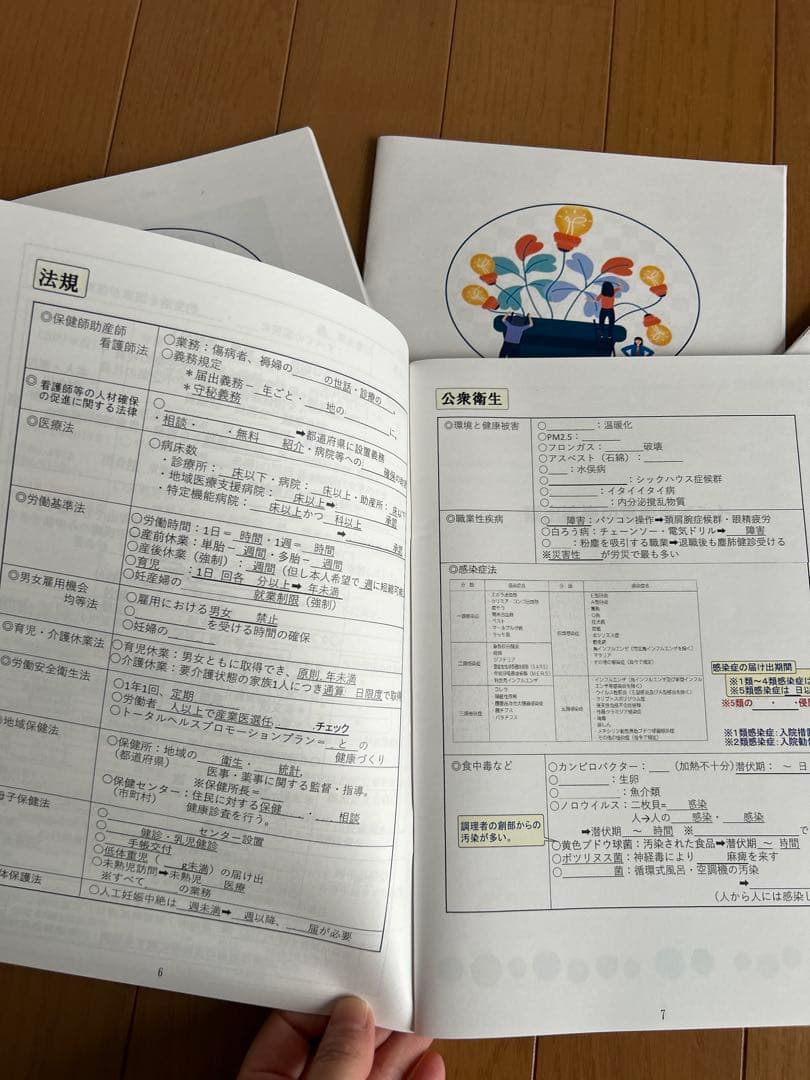 法規
◎保健師助産師
看護師法
○業務：傷病者、褥婦の＿＿の世話・診療の＿＿、
○義務規定
＊届出義務－＿年ごと・＿＿地の＿＿に、
＊守秘義務
◎看護師等の人材確保
の促進に関する法律
○＿＿＿＿＿➡都道府県に設置義務
・相談・＿＿・無料＿＿紹介・病院等への
◎医療法
○病床数
・診療所：＿＿床以下・病院：＿＿床以上・助産所：
・地域医療支援病院：＿＿床以上➡＿＿承認
・特定機能病院：＿＿床以上かつ＿＿科以上➡＿＿承認
◎労働基準法
○労働時間：1日＝＿時間・1週＝＿時間
○産前休業：単胎－＿週間・多胎－＿週間
○産後休業（強制）：＿週間（但し本人希望で＿週に短縮可能
○育児＿＿：1日＿回各＿＿分以上➡＿年未満
○妊産婦の＿＿＿＿就業制限（強制）
◎男女雇用機会
均等法
○雇用における男女＿＿禁止
○＿＿＿＿＿
○妊婦の＿＿＿＿を受ける時間の確保
◎育児・介護休業法
○育児休業：男女ともに取得でき、原則＿年未満
○介護休業：要介護状態の家族1人につき通算＿＿日限度で取得
◎労働安全衛生法
○1年1回、定期＿＿＿＿
○労働者＿＿人以上で産業医選任＿＿,チェック
○トータルヘルスプロモーションプラン＝＿と＿の
健康づくり
地域保健法
○保健所：地域の＿＿衛生・＿＿統計,
（都道府県）
医事・薬事に関する監督・指導。
※保健所長＝＿＿＿
○保健センター：住民に対する保健＿＿・＿＿相談
（市町村）
健康診査を行う。
母子保健法
○＿＿＿＿＿センター設置
○＿＿健診・乳児健診
○＿＿手帳交付
○低体重児（＿＿g未満）の届け出
○未熟児訪問➡未熟児＿＿医療
※すべて＿＿＿の業務
体保護法
○人工妊娠中絶は＿週未満➡＿週以降、＿＿届が必要
6
公衆衛生
◎環境と健康被害
○＿＿＿＿＿：温暖化
○PM2.5：＿＿＿＿
○フロンガス：＿＿＿＿破壊
○アスベスト（石綿）：＿＿＿＿
○＿＿：水俣病
○＿＿＿＿＿：シックハウス症候群
○＿＿＿＿：イタイイタイ病
○＿＿＿＿＿：内分泌撹乱物質
◎職業性疾病
○＿＿障害：パソコン操作➡頚肩腕症候群・眼精疲労
○白ろう病：チェーンソー・電気ドリル➡＿＿障害
○＿＿：粉塵を吸引する職業➡退職後も塵肺健診受ける
※災害性＿＿が労災で最も多い
◎感染症法
感染症の届け出期間
※1類～4類感染症は
※5類感染症は＿日以
※5類の＿＿・＿＿・侵
※1類感染症：入院措置
※2類感染症：入院勧告
◎食中毒など
○カンピロバクター：＿＿（加熱不十分）潜伏期：＿～＿日
○＿＿＿＿：生卵
○＿＿＿＿＿：魚介類
○ノロウイルス：二枚貝＝＿＿感染
人→人の＿＿感染・＿＿感染
➡潜伏期＿～＿時間　※＿＿＿＿＿で
調理者の創部からの
汚染が多い。
○黄色ブドウ球菌：汚染された食品➡潜伏期＿～＿時間
○ボツリヌス菌：神経毒により＿＿麻痺を来す
○＿＿＿＿菌：循環式風呂・空調機の汚染
➡
（人から人には感染し
7